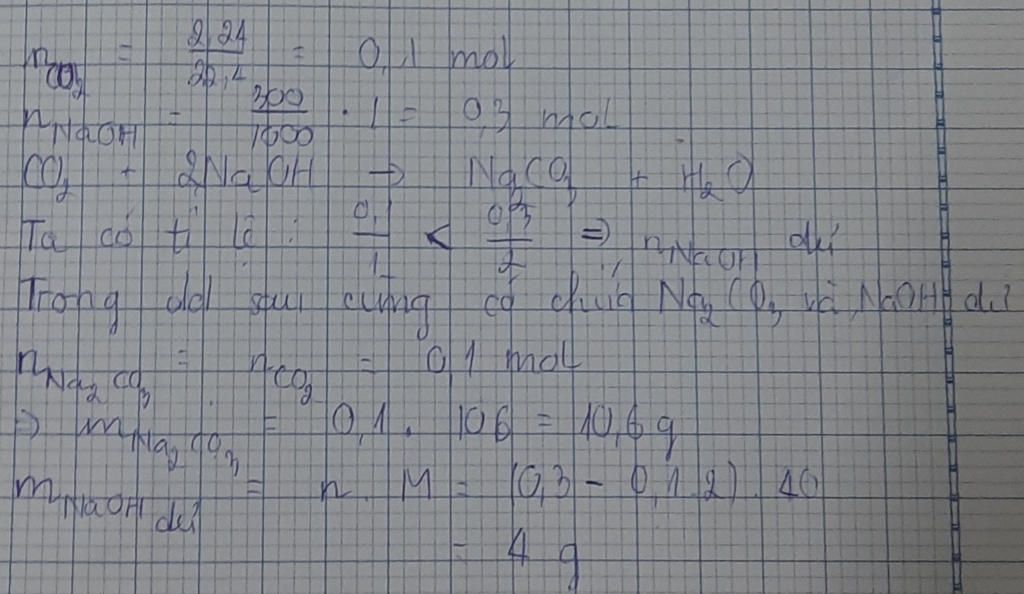 nCO₂ = 2,24/22,4 = 0,1 mol
nNaOH = 300/1000 . 1 = 0,3 mol
CO₂ + 2NaOH → Na₂CO₃ + H₂O
Ta có tỉ lệ : 0,1/1 < 0,3/2 ⇒ nNaOH dư
Trong dd sau cùng có chứa Na₂CO₃ và NaOH dư
nNa₂CO₃ = nCO₂ = 0,1 mol
⇒ mNa₂CO₃ = 0,1 . 106 = 10,6 g
mNaOH dư = n . M = (0,3 - 0,1.2) . 40
= 4 g